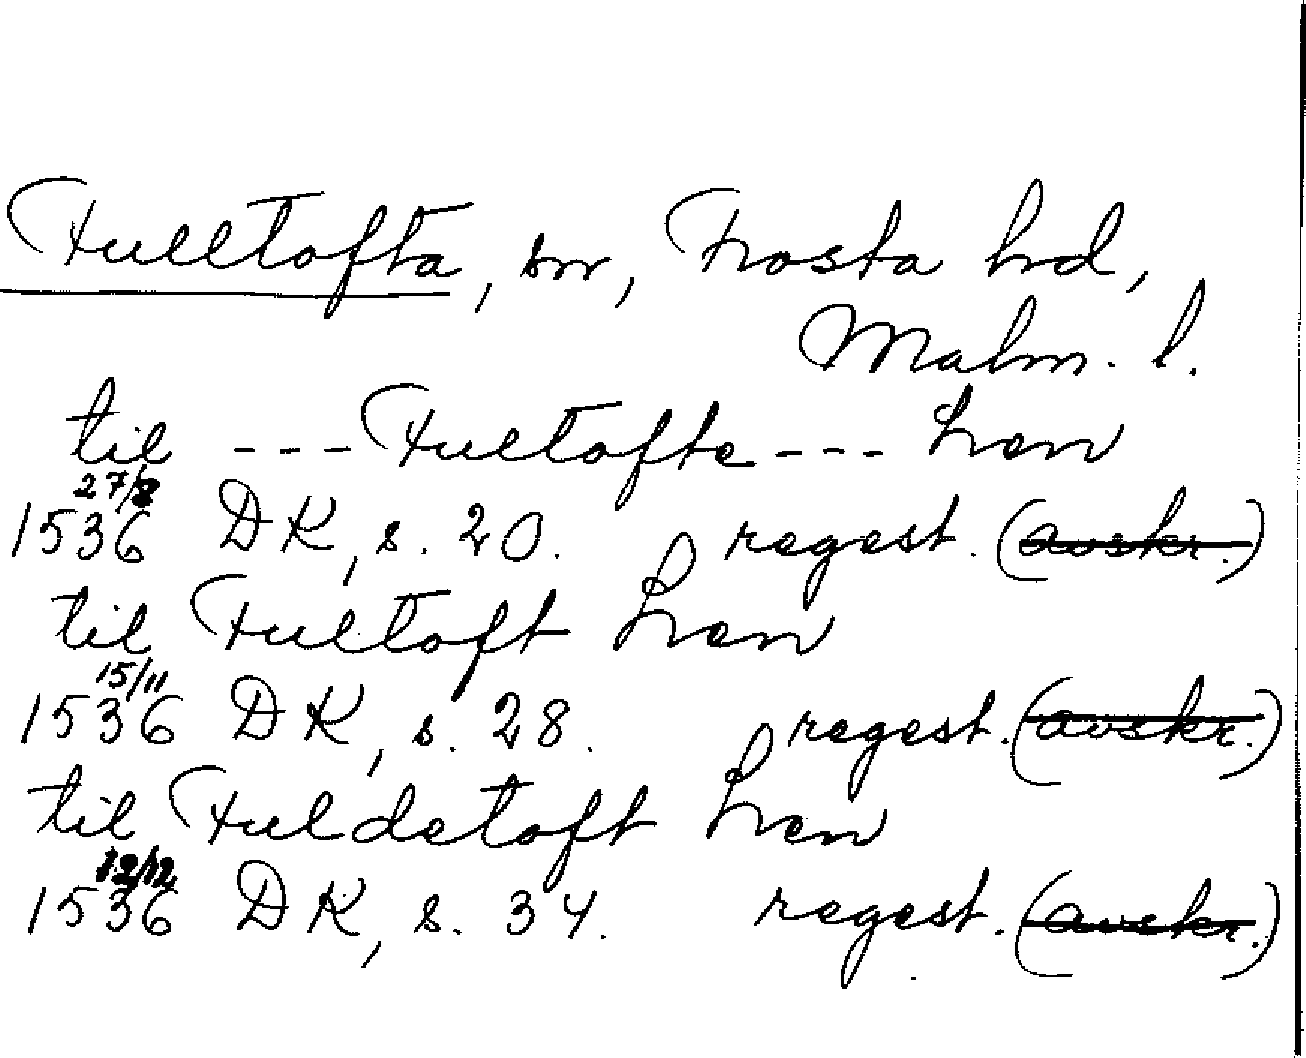 Fulltofta, sn, Frosta hd,
Malm. l.
til --- Fultofte --- hen
27/8
1536 DK, s. 20. regest. (avskr.)
til Fultoft hen
15/11
1536 DK, s. 28. regest. (avskr.)
til Fuldetoft hen
12/12
1536 DK, s. 34. regest. (avskr.)